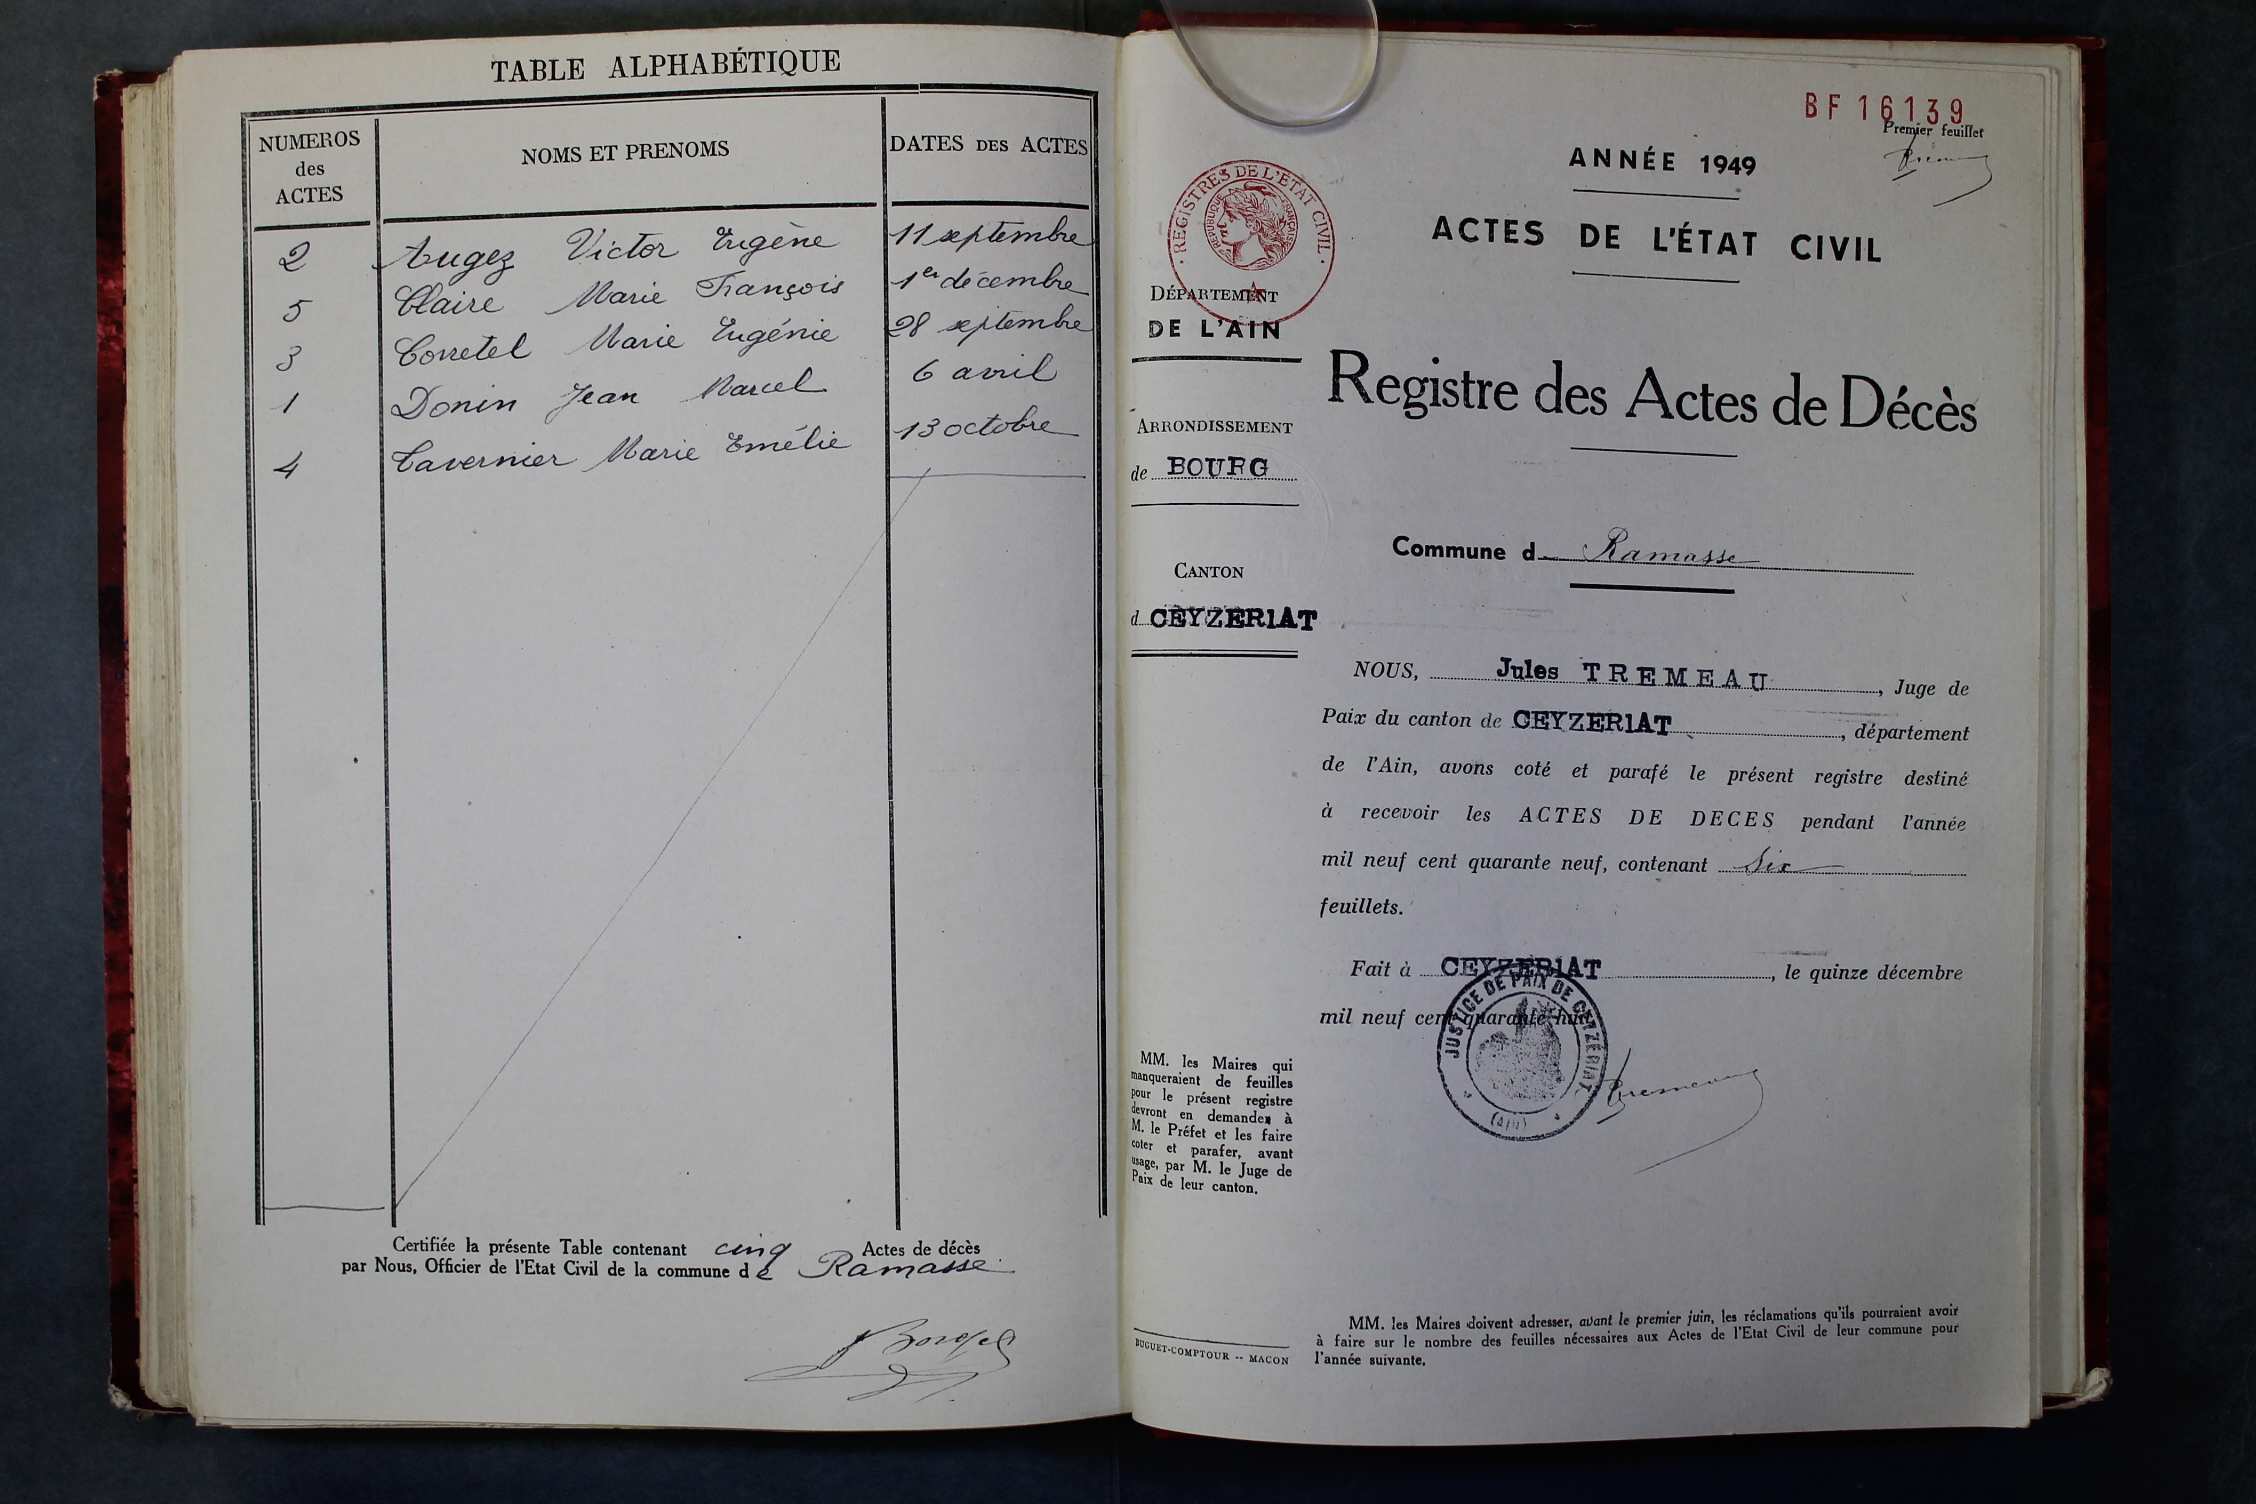 TABLE ALPHABÉTIQUE
NUMEROS des ACTES
NOMS ET PRENOMS
DATES DES ACTES
2 Augez Victor Eugène 11 septembre
5 Claire Marie François 1er décembre
3 Corretel Marie Eugénie 28 septembre
1 Donin Jean Marcel 6 avril
4 Tavernier Marie Emélie 13 octobre
Certifiée la présente Table contenant cinq Actes de décès
par Nous, Officier de l'Etat Civil de la commune de Ramasse
BF 16139
Premier feuillet
ANNÉE 1949
ACTES DE L'ÉTAT CIVIL
REGISTRES DE L'ETAT CIVIL
REPUBLIQUE FRANÇAISE
DÉPARTEMENT
DE L'AIN
Registre des Actes de Décès
ARRONDISSEMENT
de BOURG
Commune d Ramasse
CANTON
d CEYZERIAT
NOUS, Jules TREMEAU, Juge de
Paix du canton de CEYZERIAT, département
de l'Ain, avons coté et parafé le présent registre destiné
à recevoir les ACTES DE DECES pendant l'année
mil neuf cent quarante neuf, contenant Six
feuillets.
Fait à CEYZERIAT, le quinze décembre
mil neuf cent quarante huit
JUSTICE DE PAIX DE CEYZÉRIAT
(AIN)
Tremeau
MM. les Maires qui
manqueraient de feuilles
pour le présent registre
devront en demander à
M. le Préfet et les faire
coter et parafer, avant
usage, par M. le Juge de
Paix de leur canton.
BUGUET-COMPTOUR -- MACON
MM. les Maires doivent adresser, avant le premier juin, les réclamations qu'ils pourraient avoir
à faire sur le nombre des feuilles nécessaires aux Actes de l'Etat Civil de leur commune pour
l'année suivante.